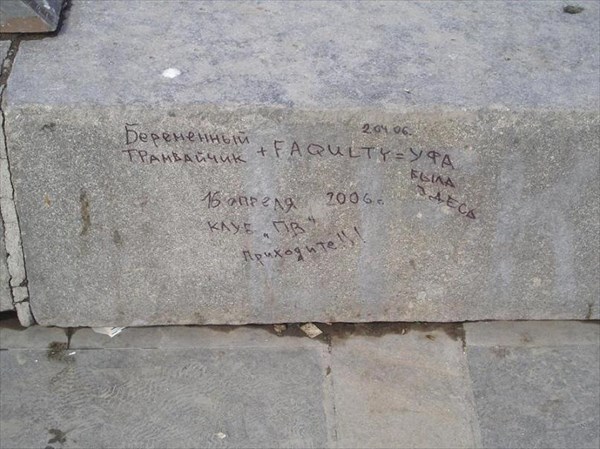 2 04 06.
Беременный
трамвайчик + FAQULTY = УФА
была
здесь
16 апреля 2006г.
клуб „ПВ"
приходите!!!